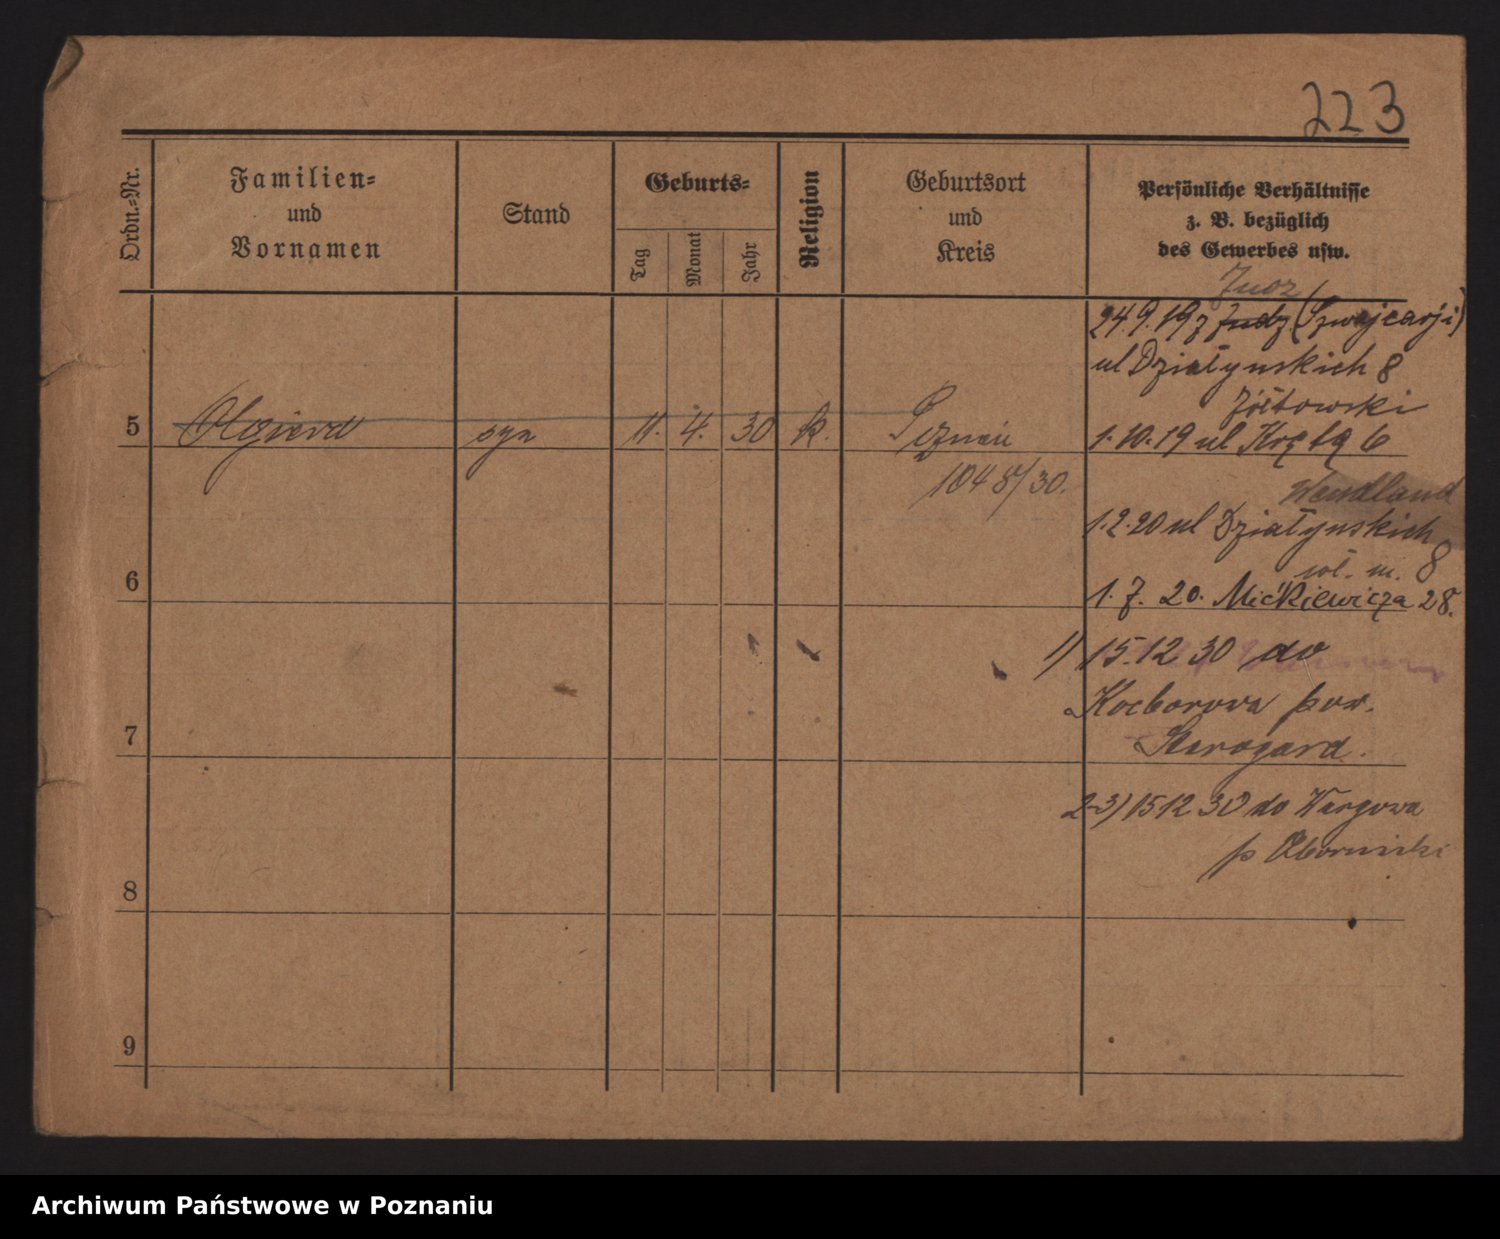 223
Ordn.-Nr.
Familien-
und
Vornamen
Stand
Geburts-
Tag
Monat
Jahr
Religion
Geburtsort
und
Kreis
Persönliche Verhältnisse
z. B. bezüglich
des Gewerbes usw.
24.9.19 z (Szwajcarji)
ul Działynskich 8
Żółtowski
5 Olgierd syn 11. 4. 30 k. Poznań
1048/30.
1.10.19 ul Kręta 6
Wendland
1.2.20 ul Działynskich
wł. m. 8
6
1.7.20. Mickiewicza 28.
1) 15.12 30 do
Kocborowa pow.
Starogard.
7
2-3) 15 12 30 do Wargowa
p Obornicki
8
9
Archiwum Państwowe w Poznaniu